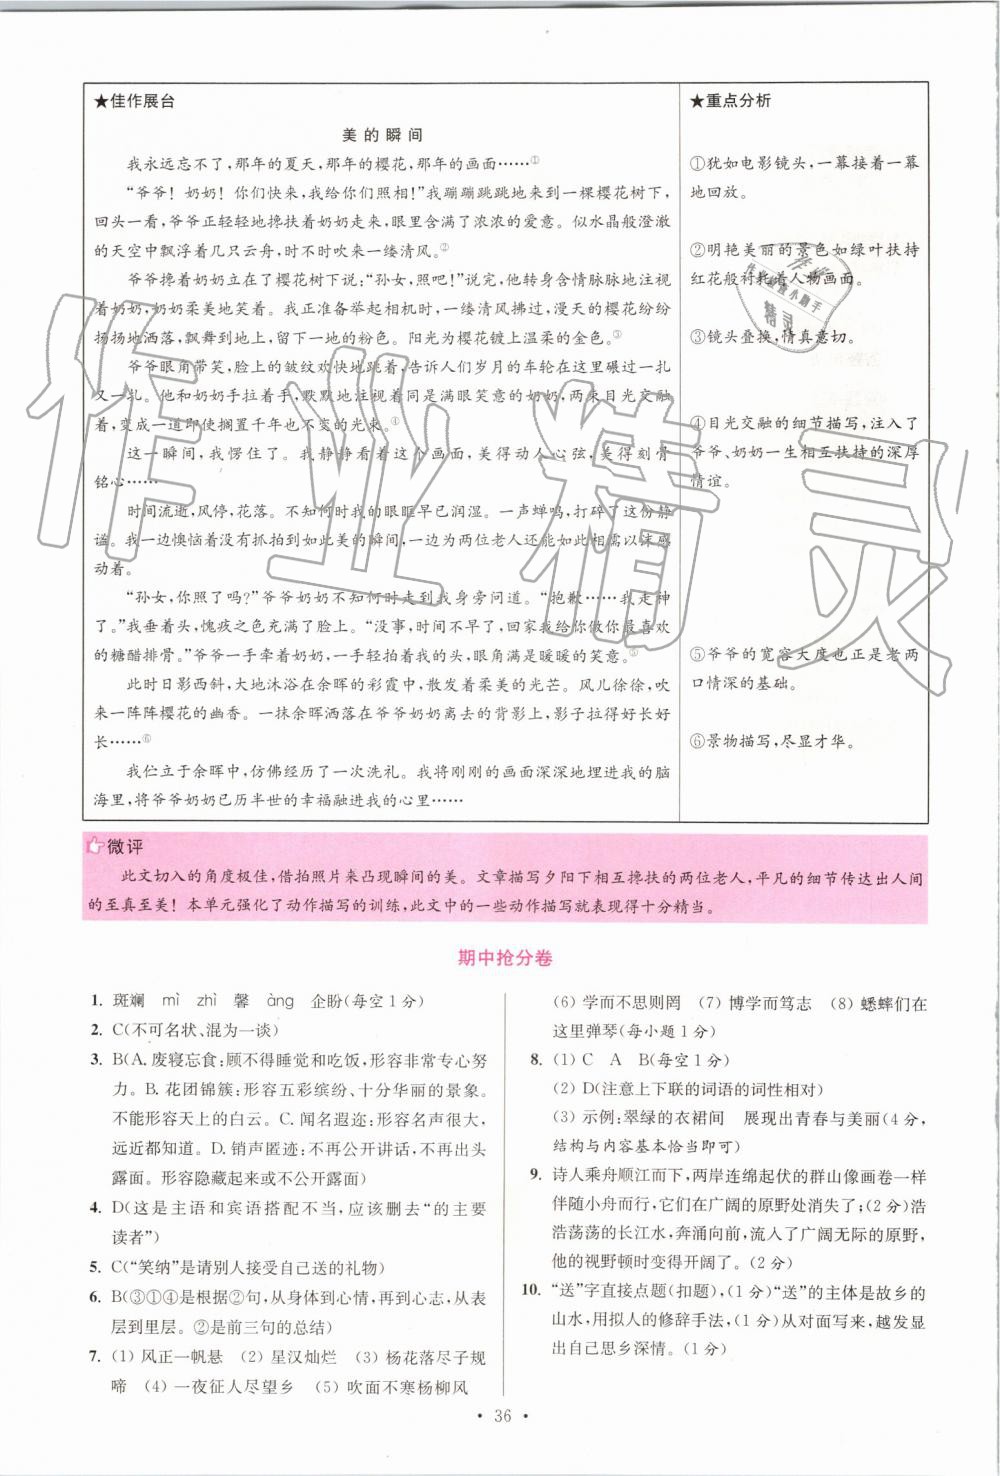 ★佳作展台
美的瞬间
我永远忘不了,那年的夏天,那年的樱花,那年的画面……①
“爷爷！奶奶！你们快来,我给你们照相!”我蹦蹦跳跳地来到一棵樱花树下,
回头一看,爷爷正轻轻地搀扶着奶奶走来,眼里含满了浓浓的爱意。似水晶般澄澈
的天空中飘浮着几只云舟,时不时吹来一缕清风。②
爷爷搀着奶奶立在了樱花树下说:“孙女,照吧!”说完,他转身含情脉脉地注视
着奶奶,奶奶柔美地笑着。我正准备举起相机时,一缕清风拂过,漫天的樱花纷纷
扬扬地洒落,飘舞到各处,留下一地的粉色。阳光为樱花镀上深沉的金色。③
爷爷眼角带笑,脸上的皱纹欢快地跳着,告诉人们岁月的车轮在这里碾过一扎
又一扎。他和奶奶手拉着手,默默地注视着同是满眼笑意的奶奶,两束目光交融
着,变成一道即使搁置千年也不变的光束。④
这一瞬间,我愣住了。我静静看着这个画面,美得动人心弦,美得刻骨
铭心……
时间流逝,风停,花落。不知何时我的眼眶早已润湿。一声蝉鸣,打碎了这份静
谧。我一边懊恼着没有抓拍到如此美的瞬间,一边为两位老人还能如此相濡以沫感
动着。
“孙女,你照了吗?”爷爷奶奶不知何时走到我身旁问道。“抱歉……我走神
了。”我垂着头,愧疚之色充满了脸上。“没事,时间不早了,回家我给你做你最喜欢
的糖醋排骨。”爷爷一手牵着奶奶,一手轻拍着我的头,眼中满是暖暖的笑意。⑤
此时日影西斜,大地沐浴在余晖的彩霞中,散发着柔美的光芒。风儿徐徐,吹
来一阵阵樱花的幽香。一抹余晖洒落在爷爷奶奶离去的背影上,影子拉得好长好
长……⑥
我伫立于余晖中,仿佛经历了一次洗礼。我将刚刚的画面深深地埋进我的脑
海里,将爷爷奶奶已历半世的幸福融进我的心里……
★重点分析
①犹如电影镜头,一幕接着一幕
地回放。
②明艳美丽的景色如绿叶扶持
红花般衬托着人物画面。
③镜头叠换,情真意切。
④目光交融的细节描写,注入了
爷爷、奶奶一生相互扶持的深厚
情谊。
⑤爷爷的宽容大度也正是老两
口情深的基础。
⑥景物描写,尽显才华。
微评
此文切入的角度极佳,借拍照片来凸现瞬间的美。文章描写夕阳下相互搀扶的两位老人,平凡的细节传达出人间
的至真至美！本单元强化了动作描写的训练,此文中的一些动作描写就表现得十分精当。
期中抢分卷
1. 斑斓　mì　zhì　馨　àng　企盼(每空1分)
2. C(不可名状、混为一谈)
3. B(A. 废寝忘食:顾不得睡觉和吃饭,形容非常专心努
力。B. 花团锦簇:形容五彩缤纷、十分华丽的景象。
不能形容天上的白云。C. 闻名遐迩:形容名声很大,
远近都知道。D. 销声匿迹:不再公开讲话,不再出头
露面。形容隐藏起来或不公开露面)
4. D(这是主语和宾语搭配不当,应该删去“的主要
读者”)
5. C(“笑纳”是请别人接受自己送的礼物)
6. B(③①④是根据②句,从身体到心情,再到心志,从表
层到里层。②是前三句的总结)
7. (1) 风正一帆悬　(2) 星汉灿烂　(3) 杨花落尽子规
啼　(4) 一夜征人尽望乡　(5) 吹面不寒杨柳风
(6) 学而不思则罔　(7) 博学而笃志　(8) 蟋蟀们在
这里弹琴(每小题1分)
8. (1) C　A　B(每空1分)
(2) D(注意上下联的词语的词性相对)
(3) 示例:翠绿的衣裙间　展现出青春与美丽(4分,
结构与内容基本恰当即可)
9. 诗人乘舟顺江而下,两岸连绵起伏的群山像画卷一样
伴随小舟而行,它们在广阔的原野处消失了;(2分)浩
浩荡荡的长江水,奔涌向前,流入了广阔无际的原野,
他的视野顿时变得开阔了。(2分)
10. “送”字直接点题(扣题),(1分)“送”的主体是故乡的
山水,用拟人的修辞手法,(1分)从对面写来,越发显
出自己思乡深情。(1分)
• 36 •
作业精灵